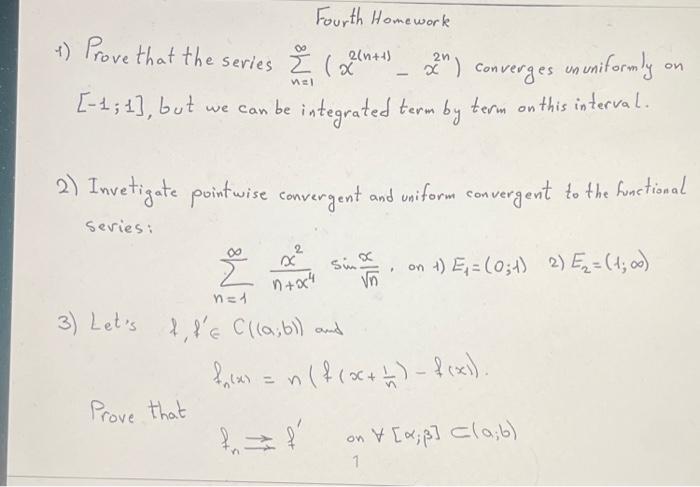 Fourth Homework
1) Prove that the series ∑_{n=1}^{∞} (x^{2(n+1)} - x^{2n}) converges ununiformly on
[-1;1], but we can be integrated term by term on this interval.
2) Invetigate pointwise convergent and uniform convergent to the functional
series:
∑_{n=1}^{∞} x²/(n+x⁴) sin x/√n, on 1) E₁=(0;1) 2) E₂=(1;∞)
3) Let's f, f'∈ C((a;b)) and
fₙ(x) = n(f(x+1/n) - f(x)).
Prove that
fₙ ⇉ f' on ∀ [α;β] ⊂ (a;b)
1